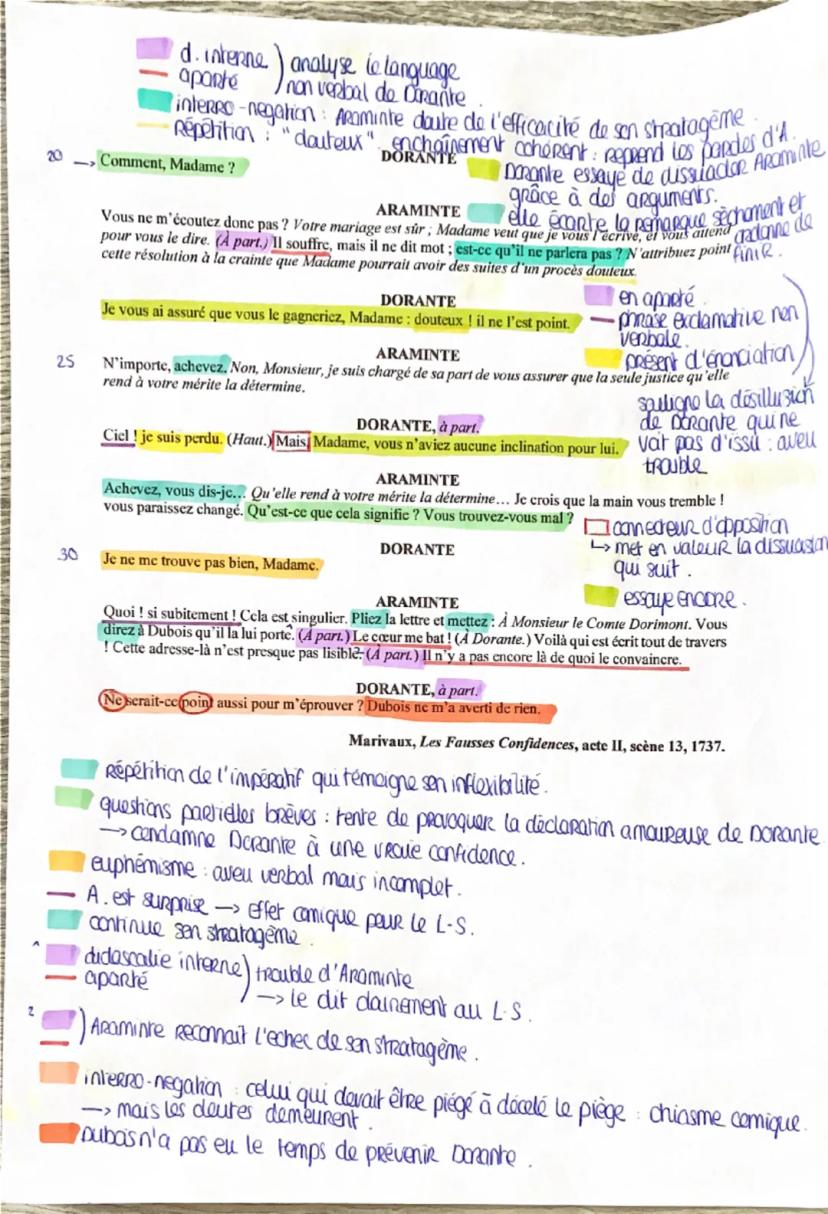 d. interne
aparté
) analyse le language
non verbal de Dorante.
interro-negation : Araminte doute de l'efficacité de son stratagème.
Répétition : "douteux". enchaînement cohérent : reprend les paroles d'A.
20 → Comment, Madame ?
DORANTE
Dorante essaye de dissuader Araminte
grâce à des arguments.
elle écarte la remarque sèchement et
ordonne de
finir.
ARAMINTE
Vous ne m'écoutez donc pas ? Votre mariage est sûr ; Madame veut que je vous l'écrive, et vous attend
pour vous le dire. (À part.) Il souffre, mais il ne dit mot ; est-ce qu'il ne parlera pas ? N'attribuez point
cette résolution à la crainte que Madame pourrait avoir des suites d'un procès douteux.
DORANTE
Je vous ai assuré que vous le gagneriez, Madame : douteux ! il ne l'est point.
en aparté.
phrase exclamative non
verbale.
présent d'énonciation
souligne la désillusion
de Dorante qui ne
voit pas d'issu : aveu
trouble
ARAMINTE
25 N'importe, achevez. Non, Monsieur, je suis chargé de sa part de vous assurer que la seule justice qu'elle
rend à votre mérite la détermine.
DORANTE, à part.
Ciel ! je suis perdu. (Haut.) Mais, Madame, vous n'aviez aucune inclination pour lui.
ARAMINTE
Achevez, vous dis-je... Qu'elle rend à votre mérite la détermine... Je crois que la main vous tremble !
vous paraissez changé. Qu'est-ce que cela signifie ? Vous trouvez-vous mal ?
connecteur d'opposition
↳ met en valeur la dissuasion
qui suit.
essaye encore.
DORANTE
30 Je ne me trouve pas bien, Madame.
ARAMINTE
Quoi ! si subitement ! Cela est singulier. Pliez la lettre et mettez : À Monsieur le Comte Dorimont. Vous
direz à Dubois qu'il la lui porte. (À part.) Le cœur me bat ! (À Dorante.) Voilà qui est écrit tout de travers
! Cette adresse-là n'est presque pas lisible. (À part.) Il n'y a pas encore là de quoi le convaincre.
DORANTE, à part.
Ne serait-ce point aussi pour m'éprouver ? Dubois ne m'a averti de rien.
Marivaux, Les Fausses Confidences, acte II, scène 13, 1737.
Répétition de l'impératif qui témoigne son inflexibilité.
questions partielles brèves : tente de provoquer la déclaration amoureuse de Dorante
→ condamne Dorante à une vraie confidence.
euphémisme : aveu verbal mais incomplet.
A. est surprise → effet comique pour le L-S.
continue son stratagème.
1 didascalie interne
aparté
) trouble d'Araminte
→ le dit clairement au L-S.
2 ) Araminte reconnait l'echec de son stratagème.
interro-negation : celui qui devait être piégé à décelé le piège : chiasme comique.
→ mais les doutes demeurent.
Dubois n'a pas eu le temps de prévenir Dorante.